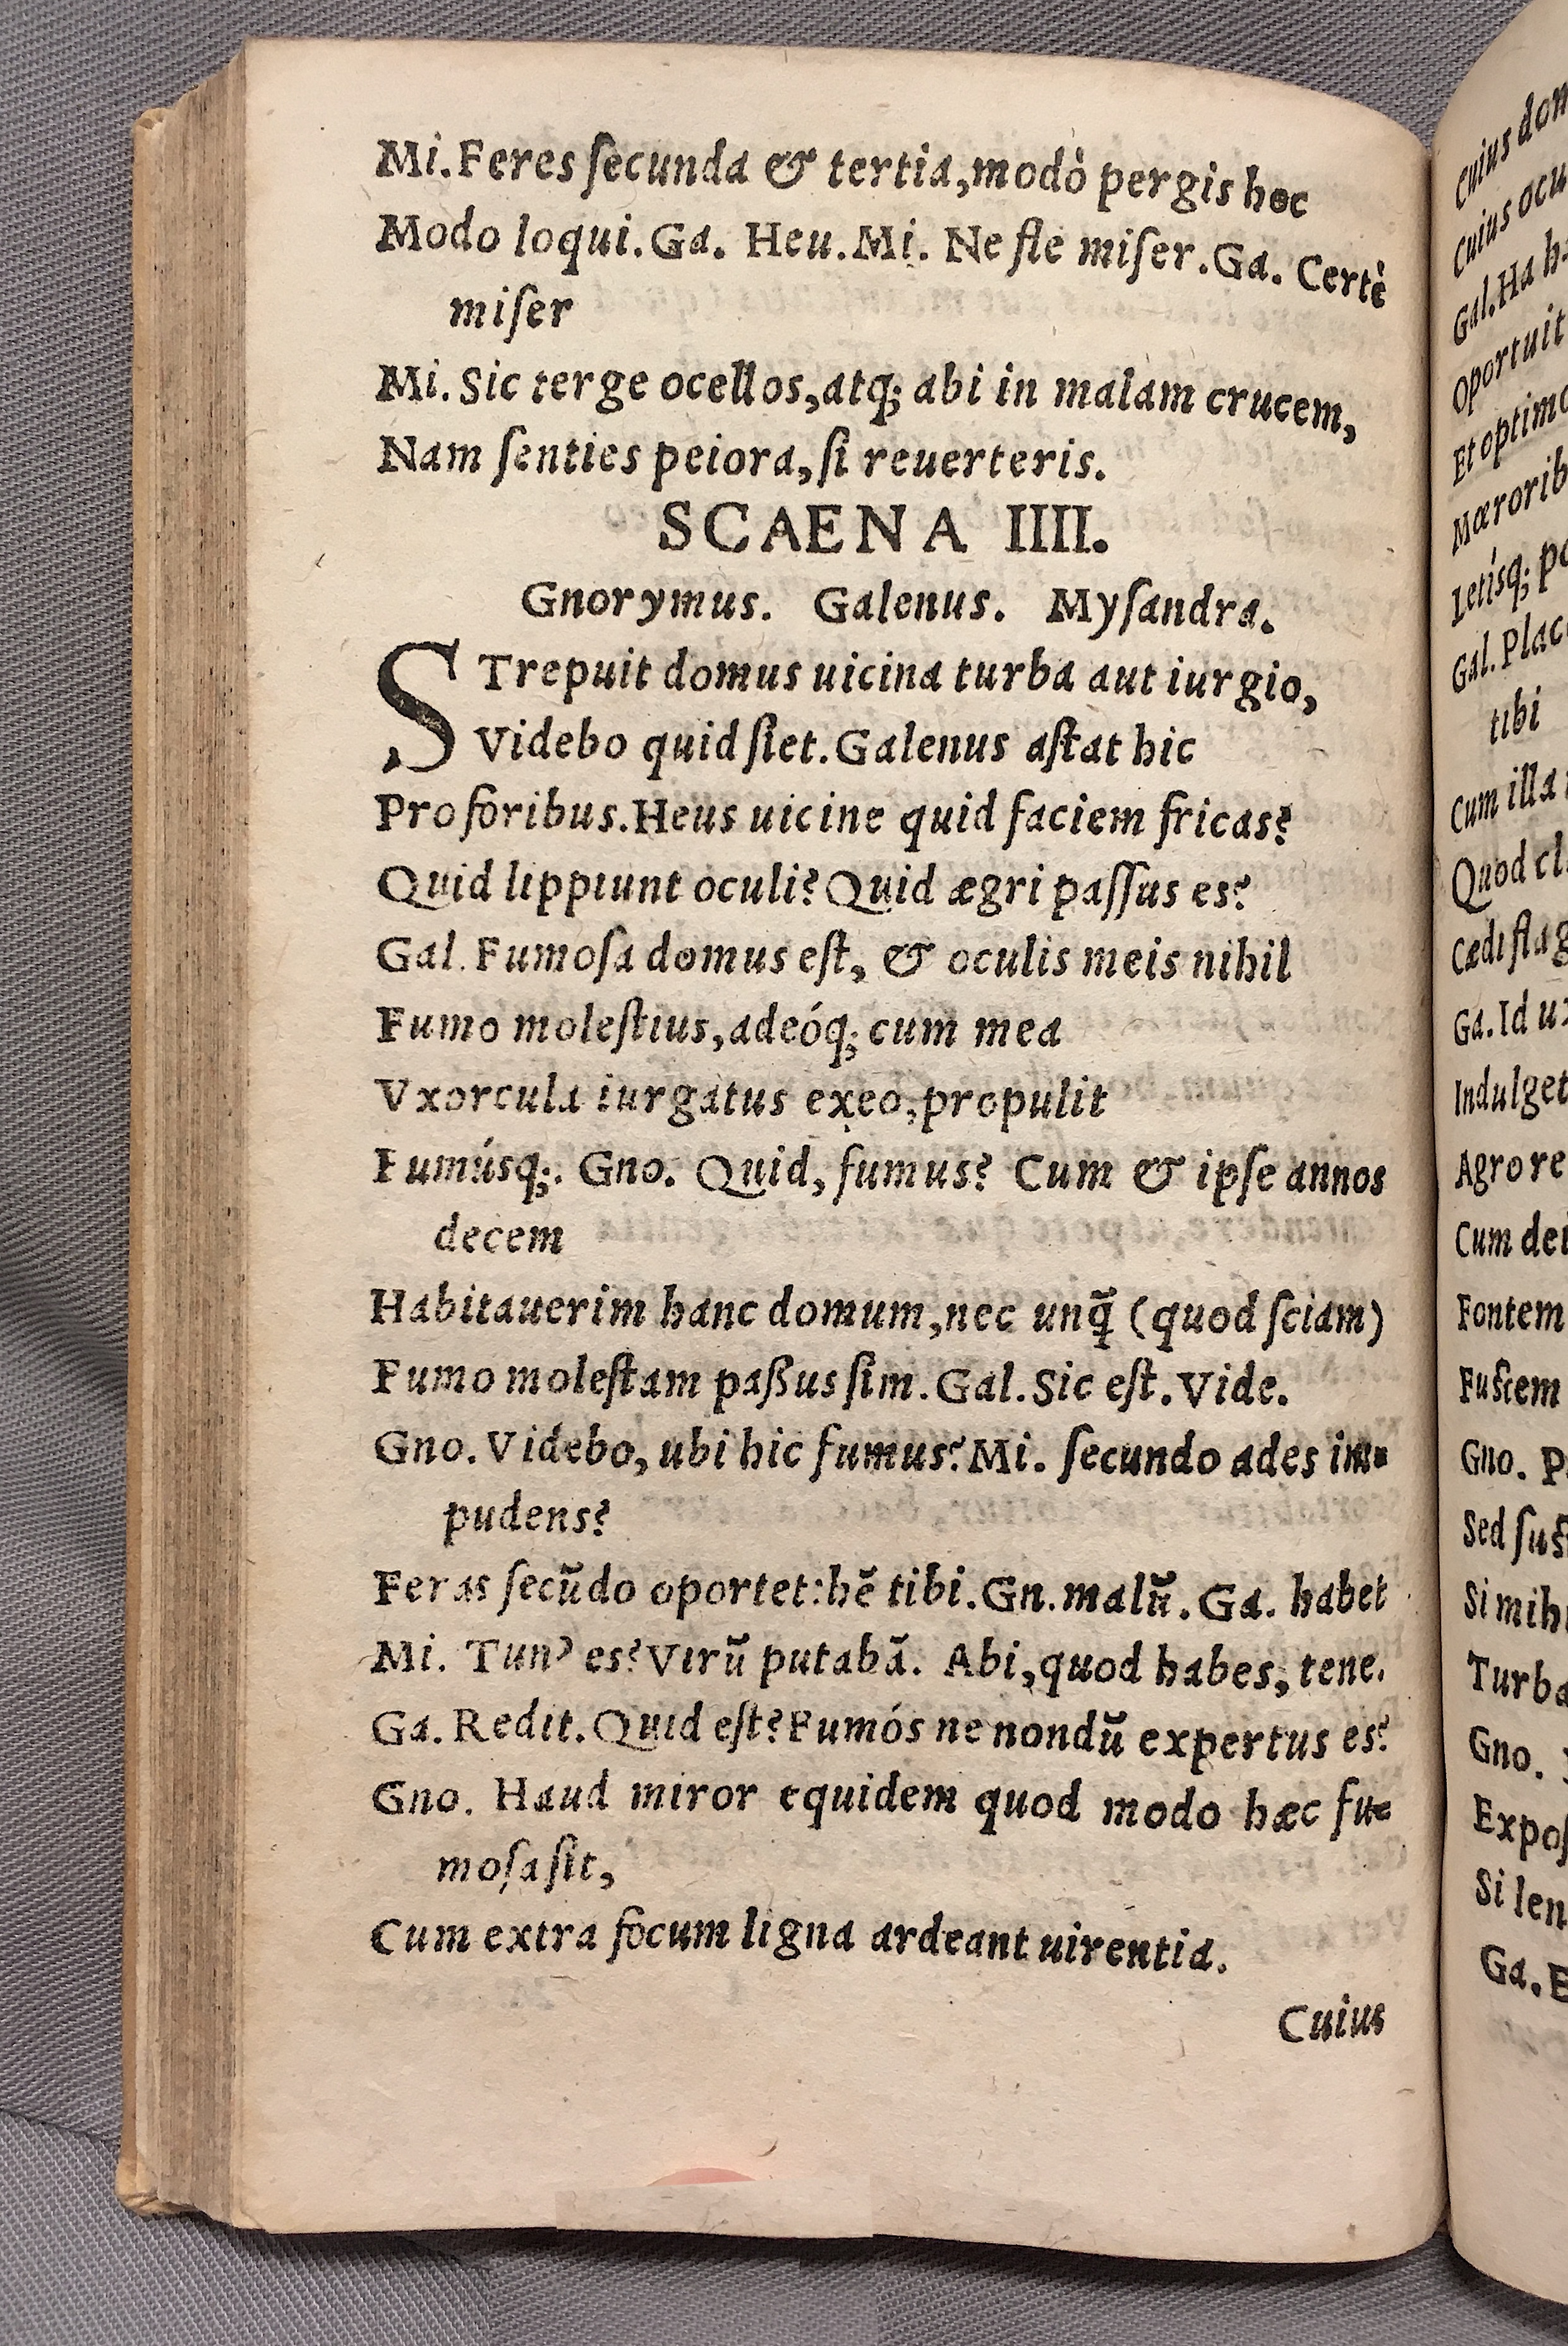 Mi. Feres ſecunda & tertia, modò pergis hoc
Modo loqui. Ga. Heu. Mi. Ne fle miſer. Ga. Certè
miſer
Mi. Sic terge ocellos, atq; abi in malam crucem,
Nam ſenties peiora, ſi reuerteris.
SCAENA IIII.
Gnorymus. Galenus. Myſandra.
STrepuit domus uicina turba aut iurgio,
Videbo quid ſiet. Galenus aſtat hic
Pro foribus. Heus uicine quid faciem fricas?
Quid lippiunt oculi? Quid ægri paſſus es?
Gal. Fumoſa domus eſt, & oculis meis nihil
Fumo moleſtius, adeóq; cum mea
Vxorcula iurgatus exeo, propulit
Fumúsq;. Gno. Quid, fumus? Cum & ipſe annos
decem
Habitauerim hanc domum, nec unq̃ (quod ſciam)
Fumo moleſtam paßus ſim. Gal. Sic eſt. Vide.
Gno. Videbo, ubi hic fumus? Mi. ſecundo ades im-
pudens?
Feras ſecũdo oportet: hẽ tibi. Gn. malũ. Ga. habet
Mi. Tun' es? Virũ putabã. Abi, quod habes, tene.
Ga. Redit. Quid eſt? Fumós ne nondũ expertus es?
Gno. Haud miror equidem quod modo hæc fu-
moſa ſit,
Cum extra focum ligna ardeant uirentia.
Cuius
Cuius
Gal. Ha
oportuit
Et optimo
Gal.
tibi
Cum illa
Quod
Ga. Id
Indulget
Agro
Cum
Fontem
Fuſtem
Gno.
Sed
Si
Gno.
Si
Ga.